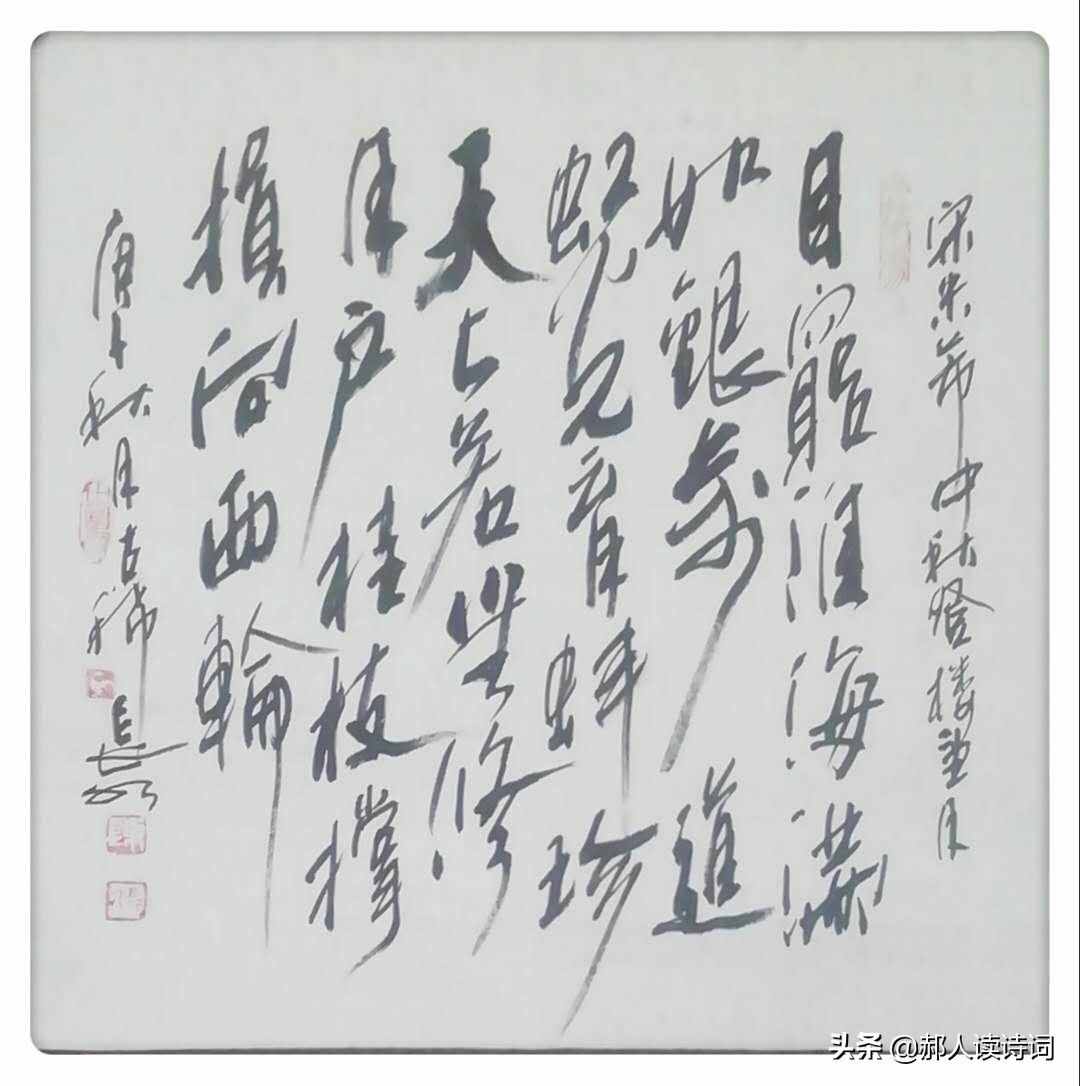 宋米芾中秋登楼望月
目窮淮海满
如銀萬道
虹光育蚌珍
天上若無修
月户桂枝撑
損向西輪
庚子秋月古稀
头条 @郝人读诗词